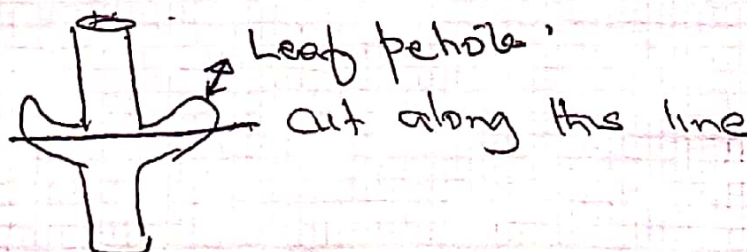 Leaf petiole.
cut along this line